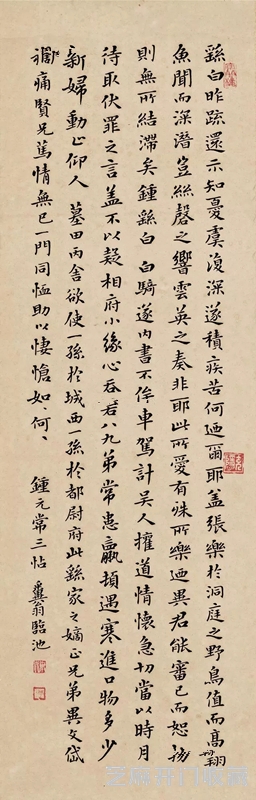 繇白昨疏還示知憂虞復深遂積疾苦何迺爾耶蓋張樂於洞庭之野鳥值而高翔
魚聞而深潛豈絲磬之響雲英之奏非耶此所愛有殊所樂迺異君能審己而恕物
則無所結滯矣鍾繇白 白騎遂內書不俟車駕計吳人權道情懷急切當以時月
待取伏罪之言蓋不以疑相府小緣心吞若八九弟常患羸頓遇寒進口物多少
新婦動止仰人 墓田丙舍欲使一孫於城西一孫於都尉府此繇家之嫡正兄弟異文岱
禍痛賢兄篤情無已一門同恤助以悽愴如何
鍾元常三帖 糞翁臨池